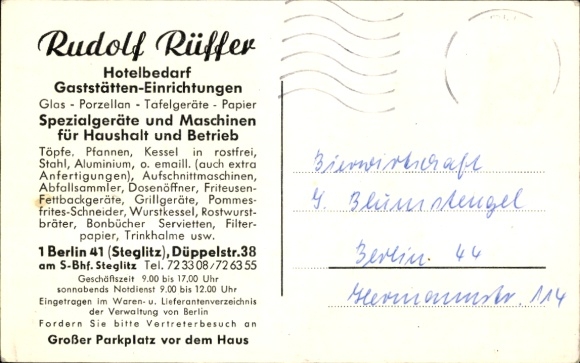 Rudolf Rüffer
Hotelbedarf
Gaststätten-Einrichtungen
Glas - Porzellan - Tafelgeräte - Papier
Spezialgeräte und Maschinen
für Haushalt und Betrieb
Töpfe, Pfannen, Kessel in rostfrei,
Stahl, Aluminium, o. emaill. (auch extra
Anfertigungen), Aufschnittmaschinen,
Abfallsammler, Dosenöffner, Friteusen-
Fettbackgeräte, Grillgeräte, Pommes-
frites-Schneider, Wurstkessel, Rostwurst-
bräter, Bonbücher Servietten, Filter-
papier, Trinkhalme usw.
1 Berlin 41 (Steglitz), Düppelstr. 38
am S-Bhf. Steglitz Tel. 72 33 08 / 72 63 55
Geschäftszeit 9.00 bis 17.00 Uhr
sonnabends Notdienst 9.00 bis 12.00 Uhr
Eingetragen im Waren- u. Lieferantenverzeichnis
der Verwaltung von Berlin
Fordern Sie bitte Vertreterbesuch an
Großer Parkplatz vor dem Haus
Bierwirtschaft
G. Blumstengel
Berlin. 44
Hermannstr. 114